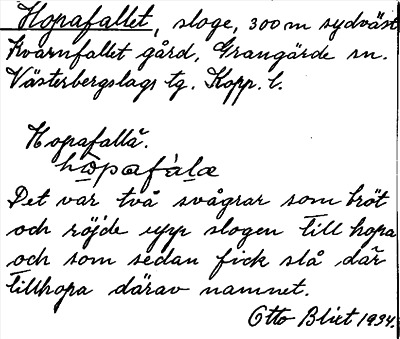 Hopafallet, sloge, 300 m sydväst
Kvarnfallet gård, Grangärde sn.
Västerbergslags tg. Kopp. l.
Hopafallä.
hɷpafàlæ
Det var två svågrar som bröt
och röjde upp slogen till hopa
och som sedan fick slå där
tillhopa därav namnet.
Otto Blixt 1934.